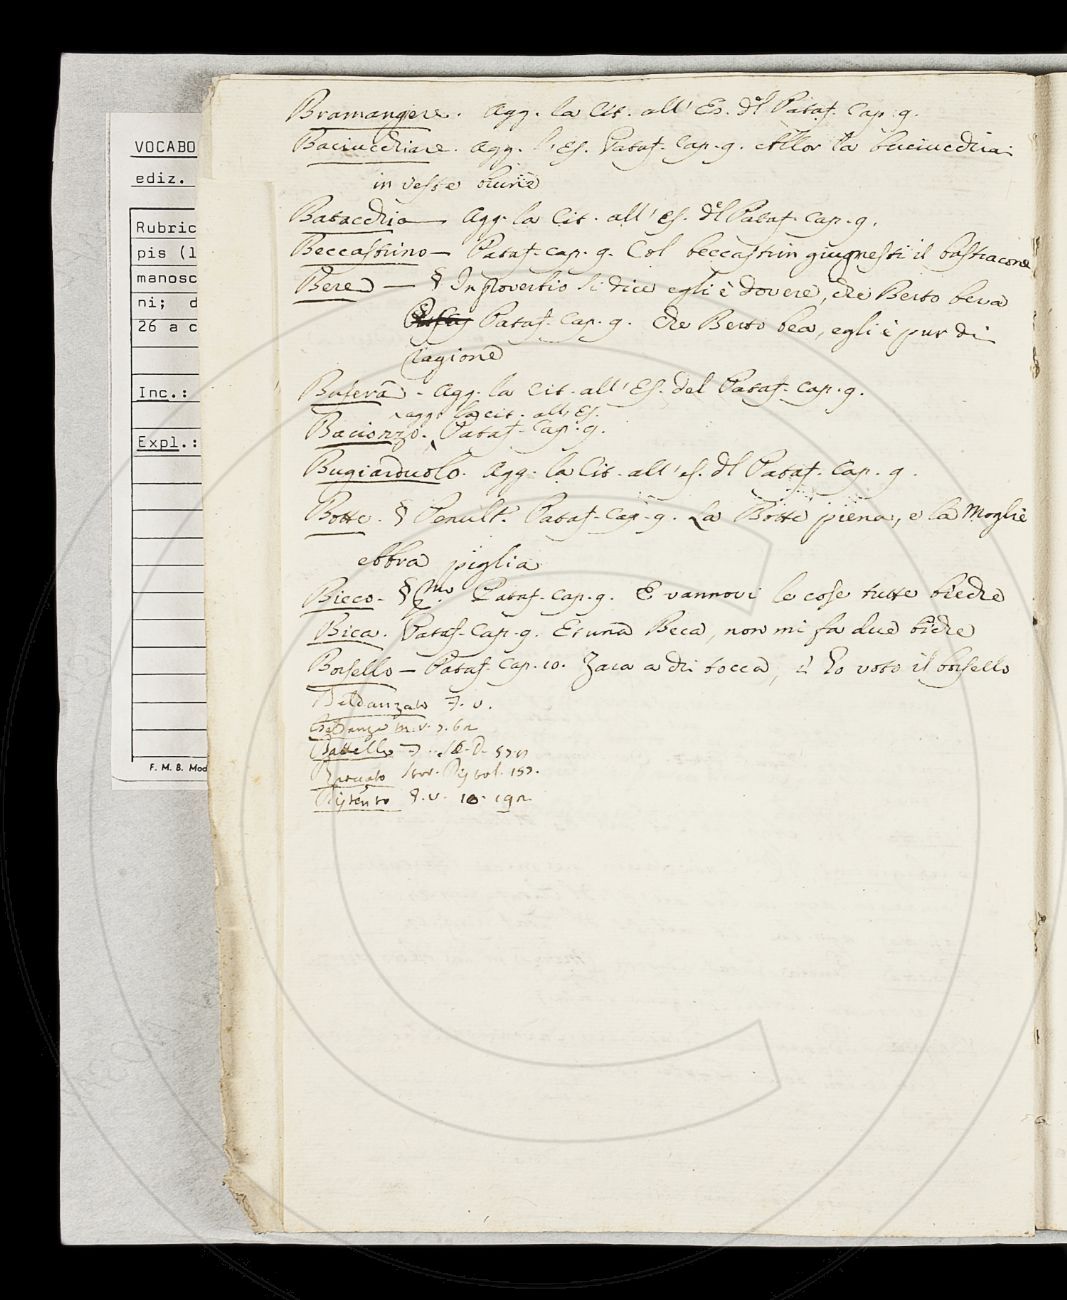 VOCABO
ediz.
Rubric
pis (l
manosc
ni; d
26 a c
Inc.:
Expl.:
F. M. B. Mod
Bramangere. Agg. la Cit. all' Es. dl Pataf. Cap. 9.
Baciucchiare. Agg. l'Es. Pataf. Cap. 9. Allor la baciucchia
in vesse
Batacchia — Agg. la Cit. all' es. dl Pataf. Cap. 9.
Beccastrino — Pataf. cap. 9. Col beccastrin giugnesti il bastracone
Bere — § In proverbio si dice egli è dovere, che Berto beva
Pataf. Cap. 9. Che Berto bea, egli è pur di
ragione
Agg. la Cit. all' Es. del Pataf. cap. 9.
agg. la cit. all' Es.
Pataf. Cap. 9.
Bugiarduolo. Agg. la Cit. all' es. dl Pataf. Cap. 9.
Botte. § Penult. Pataf. Cap. 9. La Botte piena, e la Moglie
ebbra piglia
Bieco. § Pataf. cap. 9. E vannovi le cose tutte bieche
Bica. Pataf. Cap. 9. Et una Beca, non mi fa due biche
Borsello — Pataf. Cap. 10. Zara a chi tocca, Io voto il borsello
Baldanzato F. v.